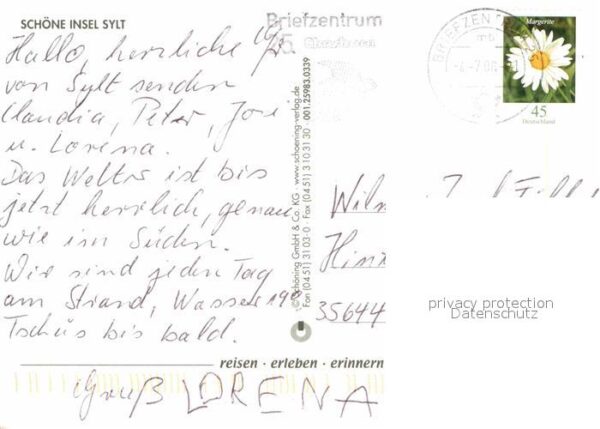 SCHÖNE INSEL SYLT
Hallo, herzliche Grüße
von Sylt senden
Claudia, Peter, José
u. Lorena.
Das Wetter ist bis
jetzt herrlich, genau
wie im Süden.
Wir sind jeden Tag
am Strand, Wasser 19°
Tschüs bis bald.
Gruß LORENA
reisen · erleben · erinnern
© Schöning GmbH & Co. KG · www.schoening-verlag.de
Fon (04 51) 3 10 3-0 · Fax (04 51) 3 10 31 30 001.25983.0339
Briefzentrum
25
BRIEFZEN
mb
Margerite
45
Deutschland
35644
privacy protection
Datenschutz